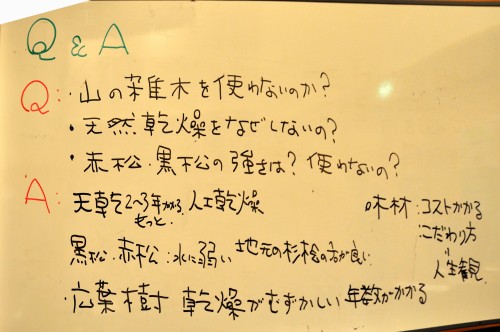 Q & A
Q: ・山の雑木を使わないのか?
・天然乾燥をなぜしないの?
・赤松・黒松の強さは? 使わないの?
A: 天乾2〜3年かかる 人工乾燥
もっと
黒松・赤松:水に弱い 地元の杉桧の方が良い
・広葉樹 乾燥がむずかしい 年数がかかる
床材:コストかかる
:こだわり方
"
人生観